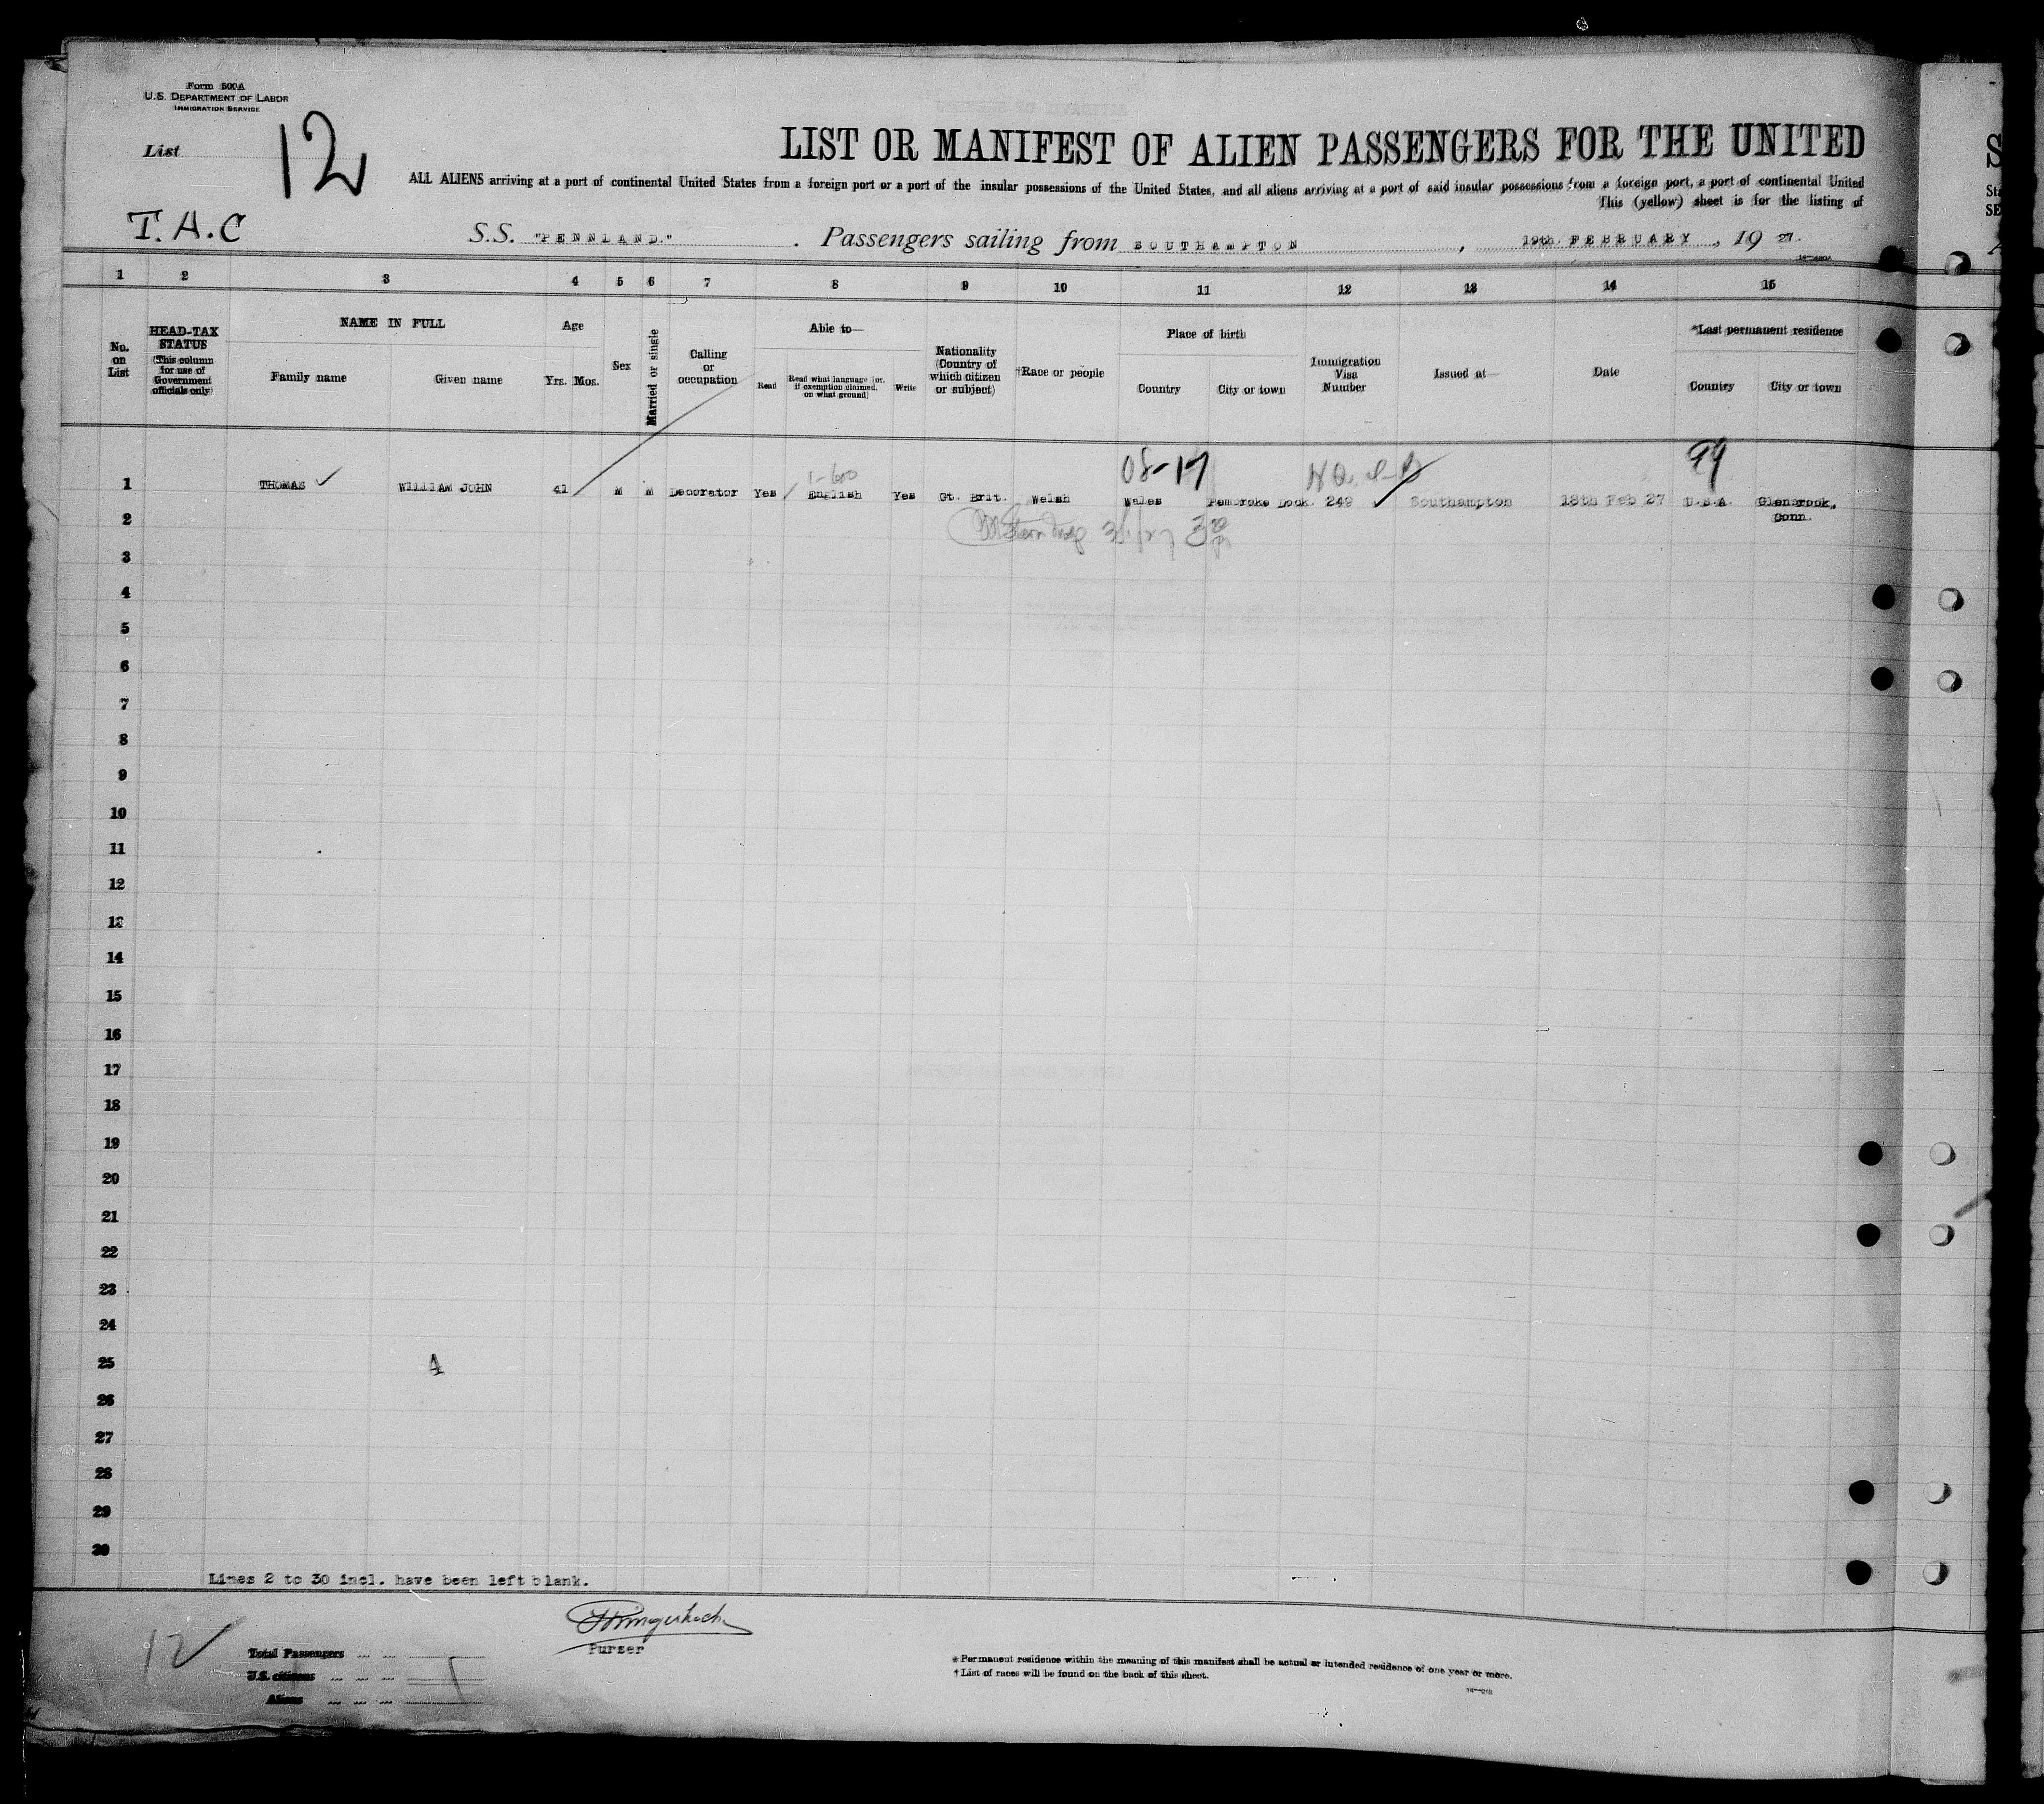 Form 500A
U.S. DEPARTMENT OF LABOR
IMMIGRATION SERVICE
List 12
LIST OR MANIFEST OF ALIEN PASSENGERS FOR THE UNITED
ALL ALIENS arriving at a port of continental United States from a foreign port or a port of the insular possessions of the United States, and all aliens arriving at a port of said insular possessions from a foreign port, a port of continental United
This (yellow) sheet is for the listing of
T.A.C
S.S. "PENNLAND." . Passengers sailing from SOUTHAMPTON , 19th FEBRUARY , 19 27.
1 2 3 4 5 6 7 8 9 10 11 12 13 14 15
No. on List
HEAD-TAX STATUS (This column for use of Government officials only)
NAME IN FULL
Family name
Given name
Age
Yrs. Mos.
Sex
Married or single
Calling or occupation
Able to—
Read
Read what language (or, if exemption claimed, on what ground)
Write
Nationality (Country of which citizen or subject)
†Race or people
Place of birth
Country
City or town
Immigration Visa Number
Issued at—
Date
*Last permanent residence
Country
City or town
08-17 99
1 THOMAS ✓ WILLIAM JOHN 41 M M Decorator Yes English Yes Gt. Brit. Welsh Wales Pembroke Dock. 249 Southampton 18th Feb 27 U.S.A. Glenbrook, Conn.
2
3
4
5
6
7
8
9
10
11
12
13
14
15
16
17
18
19
20
21
22
23
24
25
26
27
28
29
30
Lines 2 to 30 incl. have been left blank.
Purser
12
Total Passengers
U.S. citizens
Aliens
* Permanent residence within the meaning of this manifest shall be actual or intended residence of one year or more.
† List of races will be found on the back of this sheet.